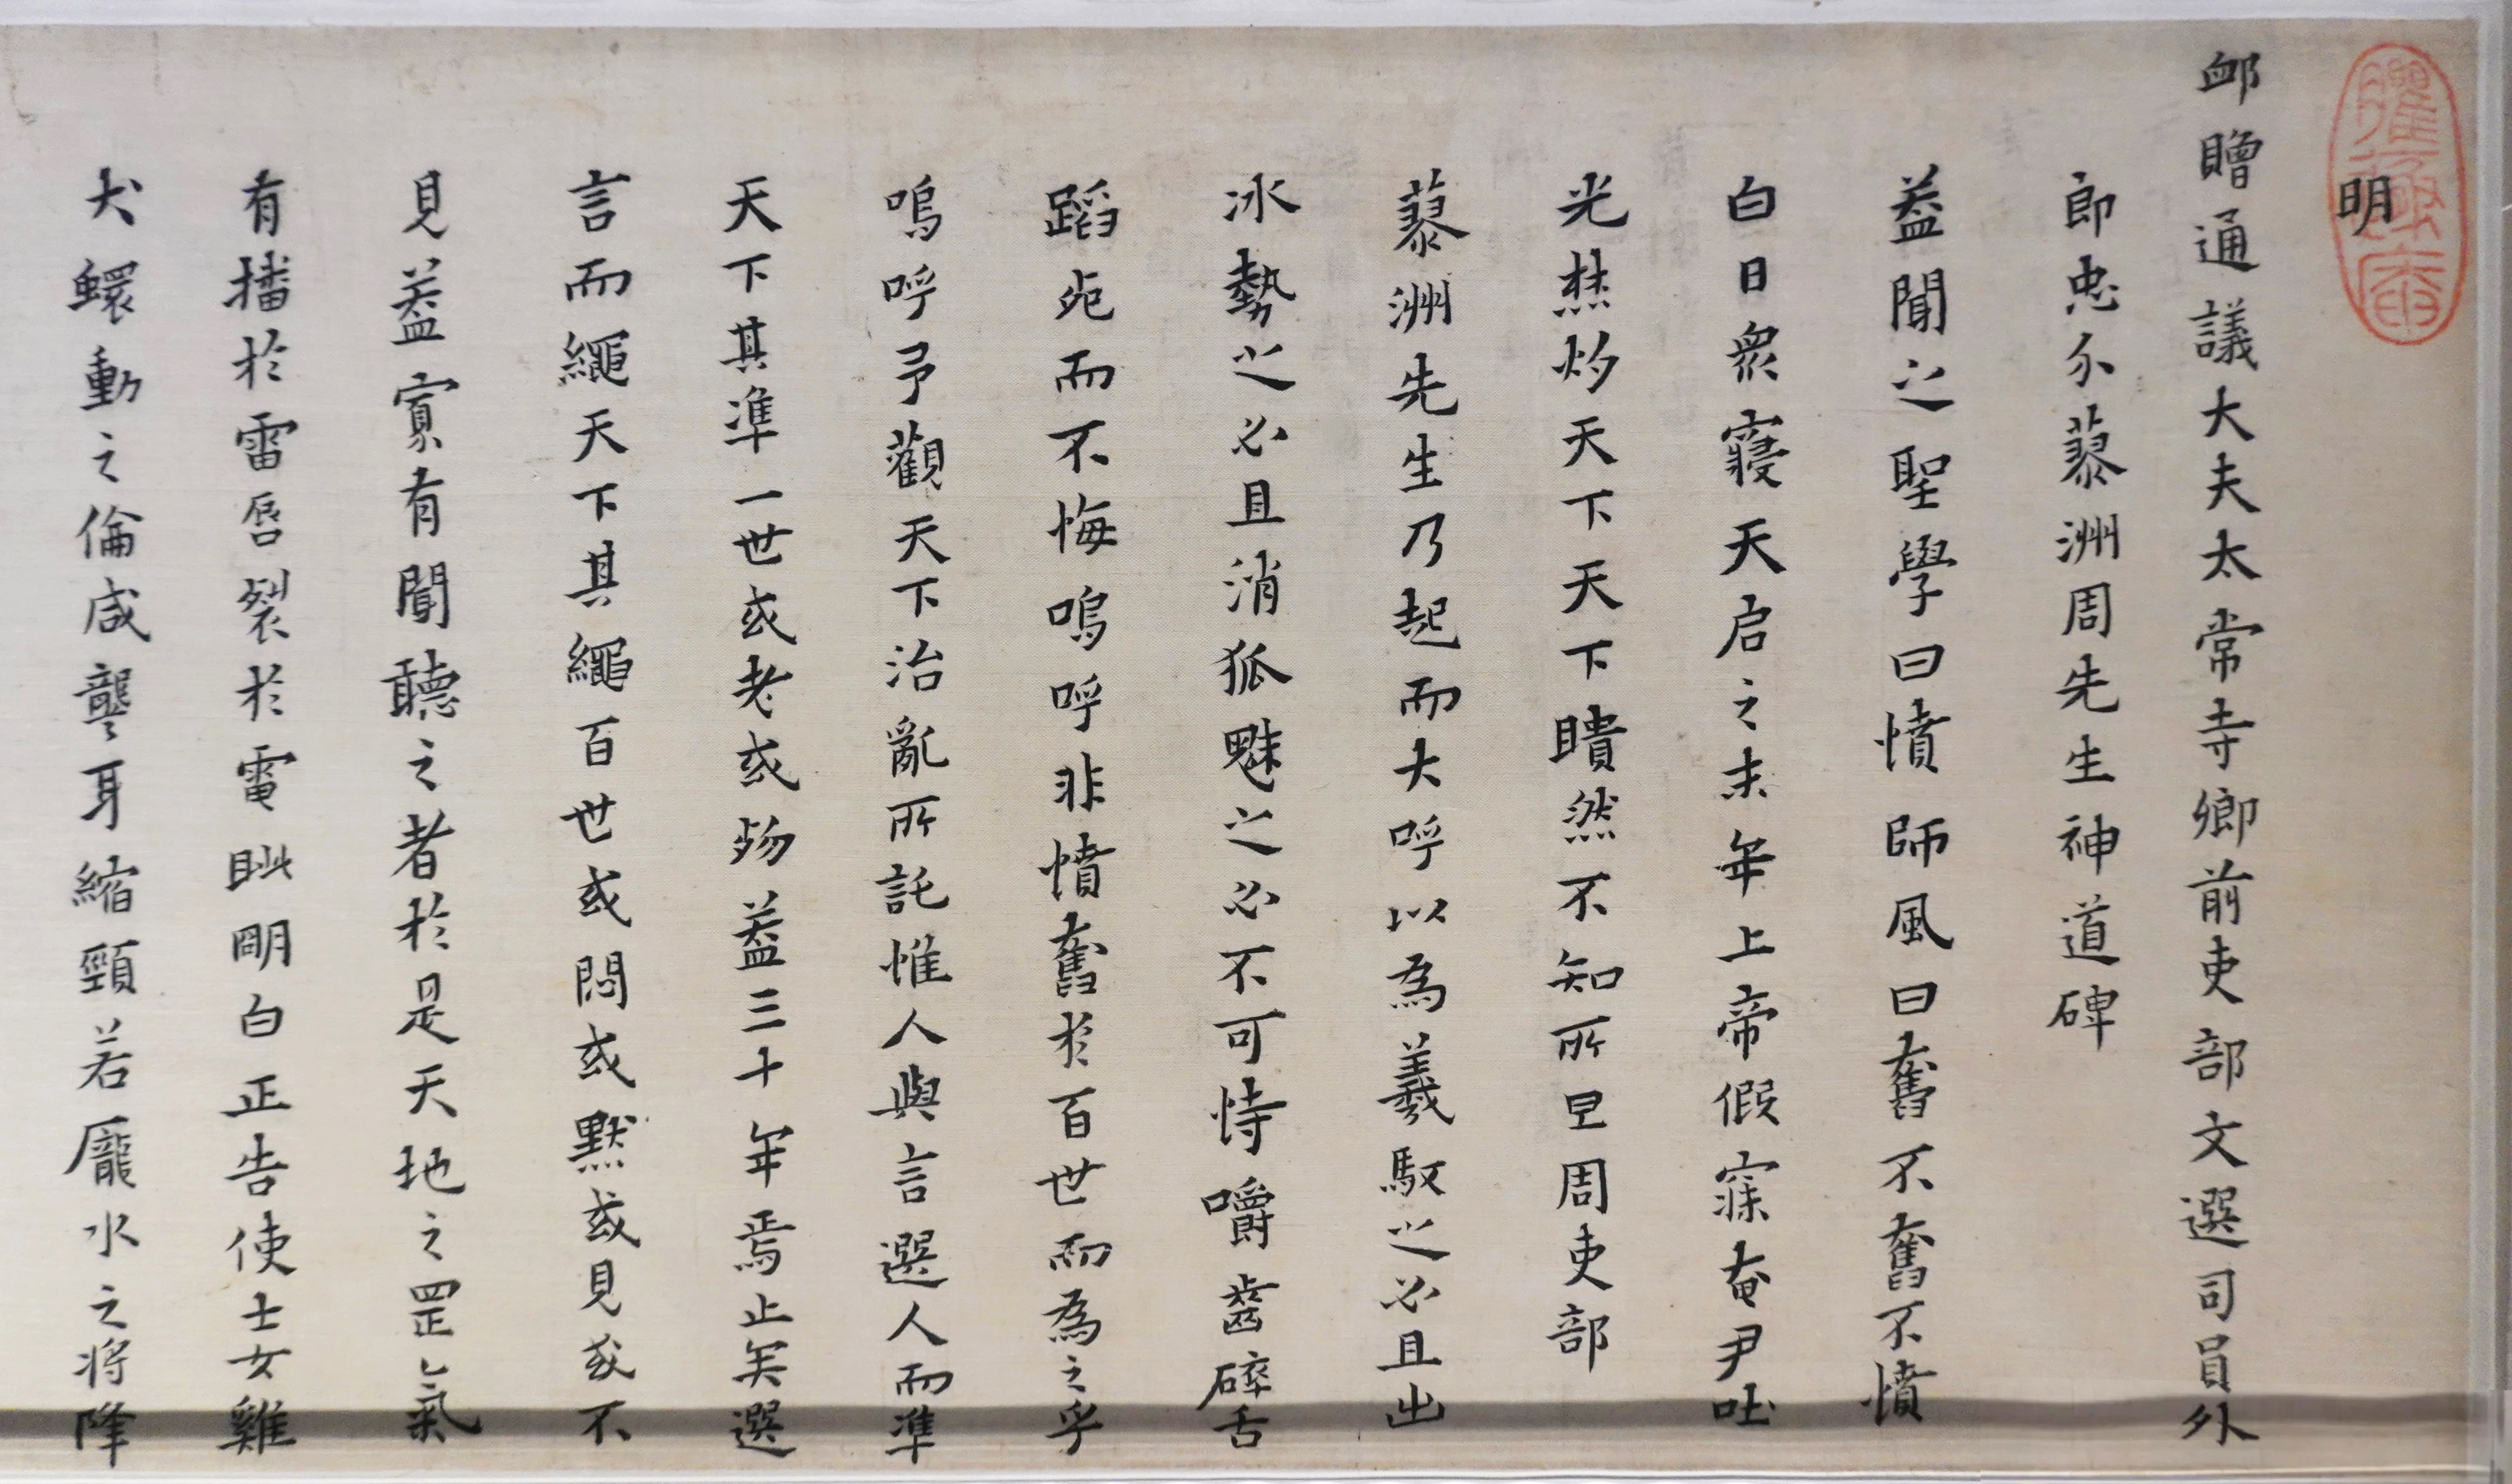 明
卹贈通議大夫太常寺卿前吏部文選司員外
郎忠介蓼洲周先生神道碑
葢聞之聖學曰憤師風曰奮不奮不憤
白日衆寢天启之末年上帝假寐奄尹吐
光焚灼天下天下瞶然不知所㠯周吏部
蓼洲先生乃起而大呼以為羲馭之必且出
冰勢之必且消狐魅之必不可恃嚼齒碎舌
蹈死而不悔嗚呼非憤奮於百世而為之乎
嗚呼予觀天下治亂所託惟人與言選人而準
天下其準一世或老或歾葢三十年焉止矣選
言而繩天下其繩百世或悶或默或見或不
見葢寡有聞聽之者於是天地之罡氣
有播於雷唇裂於電眦明白正告使士女雞
犬蠉動之倫咸聾耳縮頸若龎水之將降